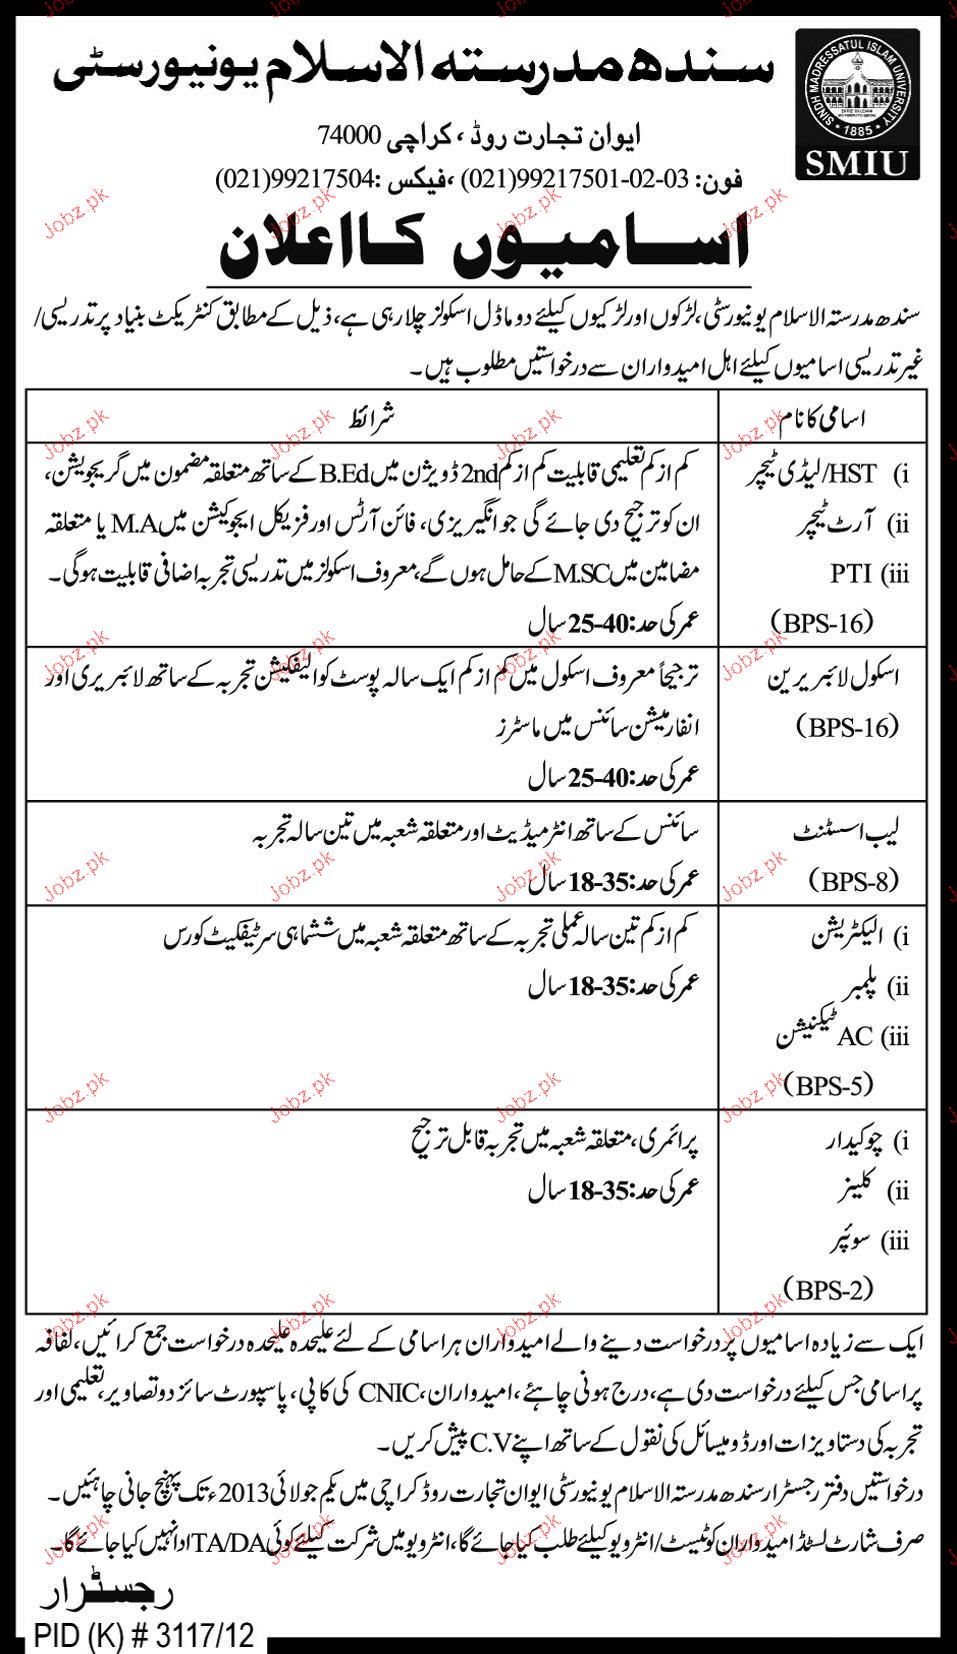 سندھ مدرستہ الاسلام یونیورسٹی
SINDH MADRESSATUL ISLAM UNIVERSITY
1885
SMIU
ایوان تجارت روڈ، کراچی 74000
فون: 03-02-99217501(021)، فیکس: 99217504(021)
اسامیوں کا اعلان
سندھ مدرستہ الاسلام یونیورسٹی، لڑکوں اور لڑکیوں کیلئے دو ماڈل اسکولز چلا رہی ہے، ذیل کے مطابق کنٹریکٹ بنیاد پر تدریسی/
غیر تدریسی اسامیوں کیلئے اہل امیدواران سے درخواستیں مطلوب ہیں۔
اسامی کا نام
شرائط
i) HST/لیڈی ٹیچر
ii) آرٹ ٹیچر
iii) PTI
(BPS-16)
کم از کم تعلیمی قابلیت کم از کم 2nd ڈویژن میں B.Ed کے ساتھ متعلقہ مضمون میں گریجویشن،
ان کو ترجیح دی جائے گی جو انگریزی، فائن آرٹس اور فزیکل ایجوکیشن میں M.A یا متعلقہ
مضامین میں M.SC کے حامل ہوں گے، معروف اسکولز میں تدریسی تجربہ اضافی قابلیت ہوگی۔
عمر کی حد: 25-40 سال
اسکول لائبریرین
(BPS-16)
ترجیحاً معروف اسکول میں کم از کم ایک سالہ پوسٹ کوالیفکیشن تجربہ کے ساتھ لائبریری اور
انفارمیشن سائنس میں ماسٹرز
عمر کی حد: 25-40 سال
لیب اسسٹنٹ
(BPS-8)
سائنس کے ساتھ انٹرمیڈیٹ اور متعلقہ شعبہ میں تین سالہ تجربہ
عمر کی حد: 18-35 سال
i) الیکٹریشن
ii) پلمبر
iii) AC ٹیکنیشن
(BPS-5)
کم از کم تین سالہ عملی تجربہ کے ساتھ متعلقہ شعبہ میں ششماہی سرٹیفکیٹ کورس
عمر کی حد: 18-35 سال
i) چوکیدار
ii) کلینر
iii) سوئپر
(BPS-2)
پرائمری، متعلقہ شعبہ میں تجربہ قابل ترجیح
عمر کی حد: 18-35 سال
ایک سے زیادہ اسامیوں پر درخواست دینے والے امیدواران ہر اسامی کے لئے علیحدہ علیحدہ درخواست جمع کرائیں، لفافہ
پر اسامی جس کیلئے درخواست دی ہے، درج ہونی چاہئے، امیدواران، CNIC کی کاپی، پاسپورٹ سائز دو تصاویر، تعلیمی اور
تجربہ کی دستاویزات اور ڈومیسائل کی نقول کے ساتھ اپنے C.V پیش کریں۔
درخواستیں دفتر رجسٹرار سندھ مدرستہ الاسلام یونیورسٹی ایوان تجارت روڈ کراچی میں یکم جولائی 2013ء تک پہنچ جانی چاہئیں۔
صرف شارٹ لسٹڈ امیدواران کو ٹیسٹ/انٹرویو کیلئے طلب کیا جائے گا، انٹرویو میں شرکت کیلئے کوئی TA/DA ادا نہیں کیا جائے گا۔
رجسٹرار
PID (K) # 3117/12
Jobz.pk